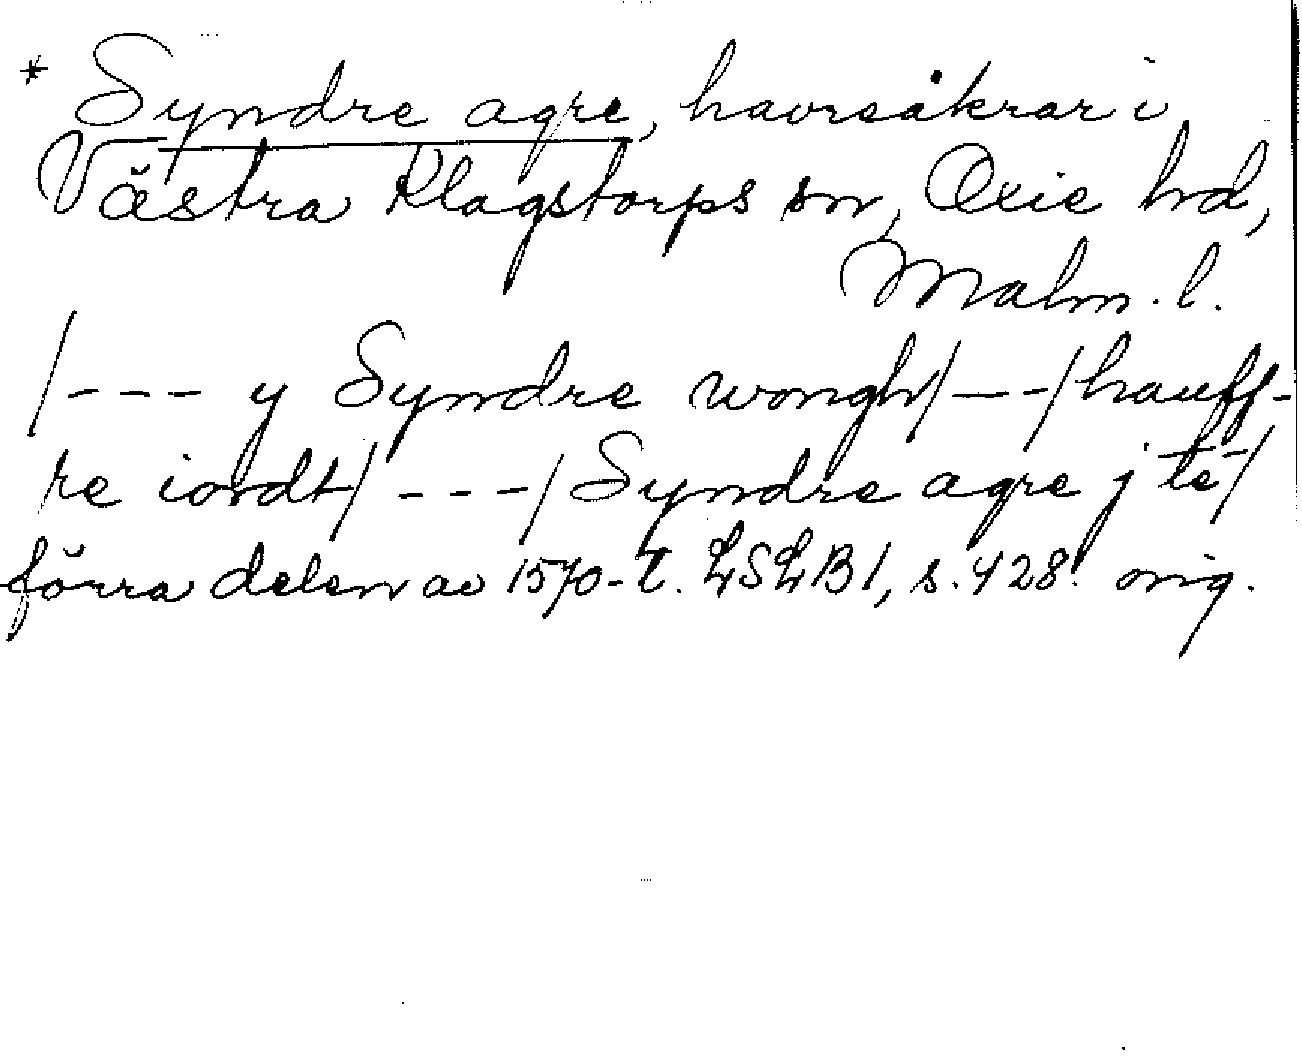 * Syndre agre, havreåkrar i
Västra Klagstorps sn, Oxie hd,
Malm. l.
/--- y Syndre wongh/---/hauff-
re iordt/----/Syndre agre j te/
förra delen av 1570-t. LSLB1, s. 428. orig.